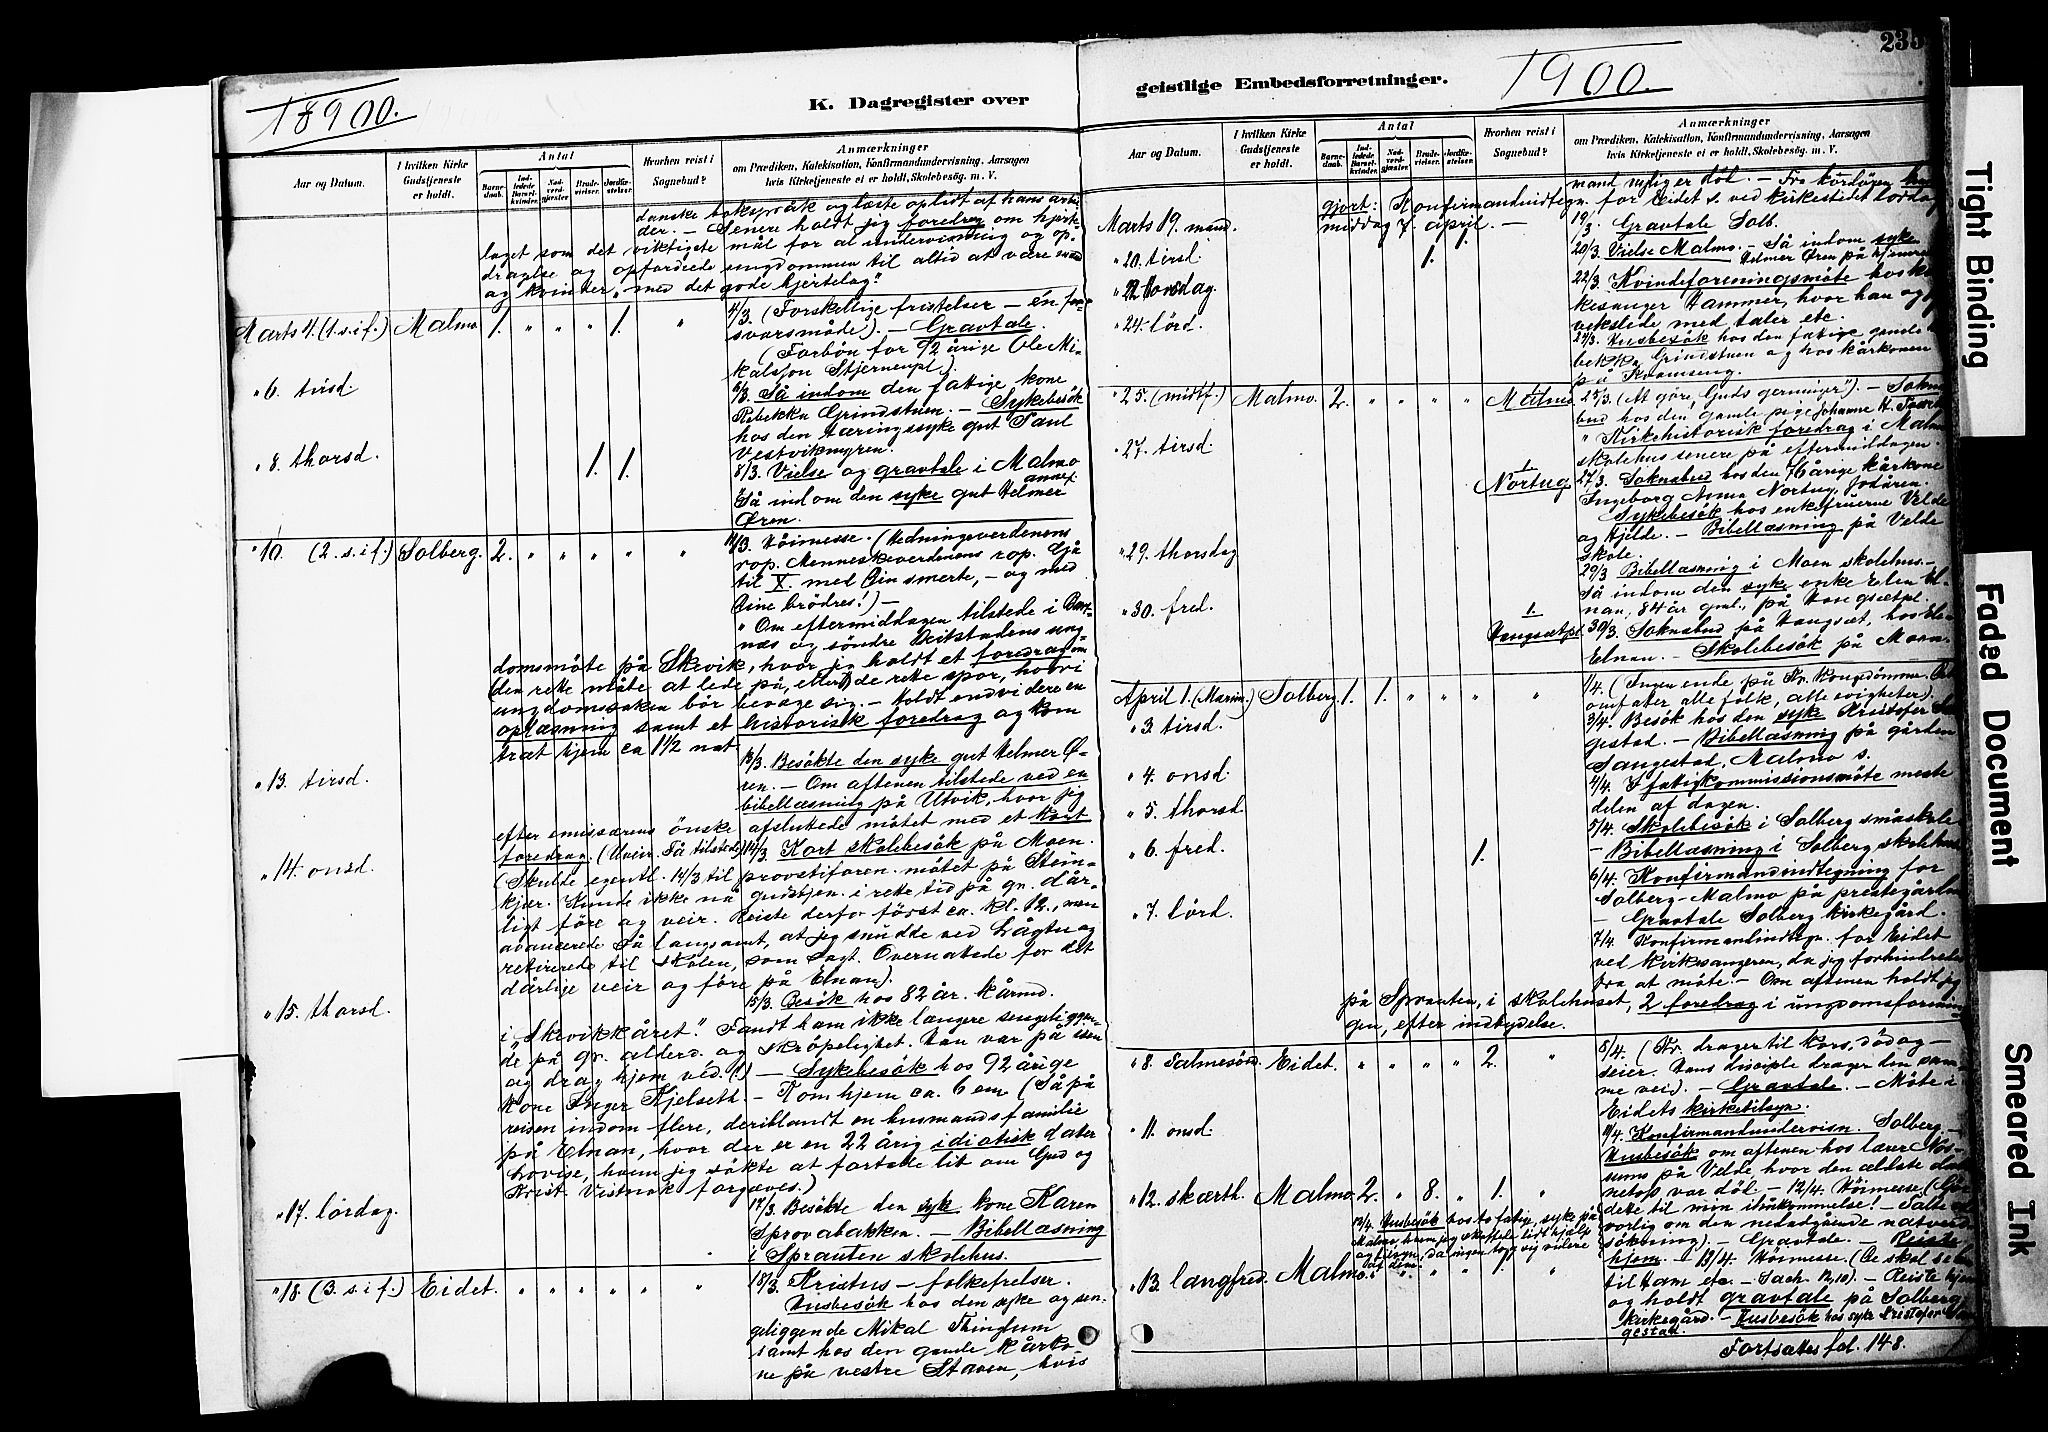 18900.
K. Dagregister over
Aar og Datum.
I hvilken Kirke Gudstjeneste er holdt.
Antal
Barnedaab.
Indledede Barselkvinder.
Nadverdgjæster.
Brudevielser.
Jordfæstelser.
Hvorhen reist i Sognebud?
Anmærkninger
om Prædiken, Katekisation, Konfirmandundervisning, Aarsagen
hvis Kirketjeneste ei er holdt, Skolebesøg. m. V.
danske bokspråk og læste op lidt af hans arbei
der. — Senere holdt jeg foredrag om hjerte
laget som det viktigste mål for al undervisning og op-
dragelse og opfordrede ungdommen til altid at være mænd
og kvinder „med det gode hjertelag".
Marts 4. (1. s. i f.) Malmo 1. " " " 1. "
4/3. (Forskellige fristelser — én for-
svarsmåde). — Gravtale.
(Forbön for 92 årige Ole Mi-
kalsson Stjernenpl.).
" 6. tirsd.
6/3. Så indom den fattige kone
Rebekka Grindstuen. — Sykebesök
hos den tæringssyke gut Paul
Vestvikmyren.
" 8. thorsd. 1. 1.
8/3. Vielse og gravtale i Malmo
annex
Så indom den syke gut Helmer
Ören.
" 10. (2. s. i f.) Solberg. 2. " " " " "
11/3. Höimesse. (Hedningeverdenens
rop. Menneskeverdenens rop. Gå
til X. med Din smerte, — og med
Dine brödres!) —
" Om eftermiddagen tilstede i
næs og söndre Beitstadens ung-
domsmöte på Skevik, hvor jeg holdt et foredrag om
den rette måte at lede på, eller de rette spor, hvori
ungdomssaken bör bevæge sig. — Holdt endvidere en
oplæsning samt et historisk foredrag og kom
træt hjem ca 1 1/2 nat
" 13. tirsd.
13/3. Besökte den syke gut Helmer Ö-
ren. — Om aftenen tilstede ved en
bibellæsning på Utvik, hvor jeg
efter emissærens önske afsluttede mötet med et kort
foredrag. (Uveir. Få tilstede)
" 14. onsd.
14/3. Kort skolebesök på Moen.
(Skulde egentl. 14/3 til provstiforen. mötet på Stein-
kjær. Kunde ikke nå gudstjen. i rette tid på gr. dår-
ligt före og veir. Reiste derfor först ca. kl. 12., men
avancerede så langsomt, at jeg snudde ved Lågtu og
retirerede til skolen, som sagt. Overnattede for det
dårlige veir og före på Elnan).
" 15. thorsd.
15/3. Besök hos 82 år. kårmd.
i „Skevikkåret". Fandt ham ikke længere sengeliggen-
de på gr. alderd. og skröpelighet. Han var på
og drag hjem ved. (!) — Sykebesök hos 92 årige
kone Inger Kjelseth. — Kom hjem ca. 6 em (Så på
reisen indom flere, deriblandt en husmandsfamilie
på Elnan, hvor der er en 22 årig idiotisk dater
Lovise, hvem jeg sökte at fortælle lit om Gud og
Krist. Vistnok forgæves.)
" 17. lördag.
17/3. Besökte den syke kone Karen
Sprovabakken. — Bibellæsning
i Sprauten skolehus.
" 18. (3. s. i f.) Eidet. " " " " " "
18/3. Kristus — folkefrelser.
Husbesök hos den syke og sen-
geliggende Mikal Thinglum
samt hos den gamle kårko-
ne på vestre Staven, hvis
1900.
geistlige Embedsforretninger.
Aar og Datum.
I hvilken Kirke Gudstjeneste er holdt.
Antal
Barnedaab.
Indledede Barselkvinder.
Nadverdgjæster.
Brudevielser.
Jordfæstelser.
Hvorhen reist i Sognebud?
Anmærkninger
om Prædiken, Katekisation, Konfirmandundervisning, Aarsagen
hvis Kirketjeneste ei er holdt, Skolebesög. m. V.
mand nylig er död. —
gjort: Konfirmandindtegn. for Eidet s. ved kirkestedet lördag
middag 7. april. —
Marts 19. mand.
19/3. Gravtale Solb.
" 20. tirsd 1.
20/3. Vielse Malmo. — Så indom syke
Helmer Ören på
" 22 torsdag.
22/3. Kvindeforeningsmöte hos kir
kesanger Hammer, hvor han og
vekslede med taler etc.
" 24. lörd.
24/3. Husbesök hos den fattige gamle
Grindstuen og hos kårkonen
på Kvamseng.
" 25. (midtf.) Malmo. 2. " " " " Malmo.
25/3. (At göre „Guds gerninger"). — Sokne
bud hos den gamle pige Johanne H.
" Kirkehistorisk foredrag i Malmo
skolehus senere på eftermiddagen.
" 27. tirsd.
1. Nortug
27/3. Soknebud hos den 76 årige kårkone
Ingeborg Anna Nortug, fodåren.
Sykebesök hos enkefruerne Velde
og Hjelde. — Bibellæsning på Velde
skole.
" 29. thorsdag
29/3 Bibellæsning i Moen skolehus. —
Så indom den syke enke Elen El-
nan, 84 år gml., på Hangsætpl.
" 30. fred.
1. Hangsætpl.
30/3. Soknebud på Hangsæt, hos
Elnan. — Skolebesök på Moen.
April 1. (Mariæ.) Solberg. 1. 1. " " " "
1/4. (Ingen ende på Kr. kongedömme. Det
omfatter alle folk, alle evigheter).
" 3. tirsd.
3/4. Besök hos den syke Kristofer San
gestad. — Bibellæsning på gården
Sangestad, Malmo s.
" 4. onsd.
4/4. I fattigkommissionsmöte meste
delen af dagen.
" 5. thorsd.
5/4. Skolebesök i Solberg småskole
— Bibellæsning i Solberg skolehus
" 6. fred. 1.
6/4. Konfirmandindtegning for
Solberg-Malmo på prestegården
— Gravtale Solberg kirkegård.
" 7. lörd.
7/4. Konfirmandindtegn. for Eidet
ved kirkesangeren, da jeg forhindredes
fra at möte. — Om aftenen holdt jeg
på Sprauten, i skolehuset, 2 foredrag i ungdomsforenin-
gen, efter indbydelse.
" 8. Palmesönd. Eidet. " " " " 2. "
8/4. (Kr. drager til kors, död og —
seier. Hans disciple drager den sam-
me vei). — Gravtale. — Möte i
Eidets kirketilsyn.
" 11. onsd.
11/4. Konfirmandundervisn. Solberg. —
Husbesök om aftenen hos lærer
på Velde, hvor den ældste
netop var död. —
" 12. skærth. Malmo. 2. " 8. " 1. "
12/4. Höimesse. (Gör
dette til min ihukommelse! — Talte
vorlig om den nedadgående natverd-
sökning). — Gravtale. — Reiste
hjem. —
13/4. Husbesök hos to fattige, syke på
Malmo, hvem jeg skaffede lidt hjælp
" 13. langfred. Malmo. " " " " 1. "
13/4. Höimesse. (De skal se hen
til ham etc. — Sach. 12,10). — Reiste hjem
og holdt gravtale på Solberg
kirkegård. — Husbesök hos syke Kristofer San
gestad.
Fortsættes fol. 148.
Tight Binding
Faded Document
Smeared Ink